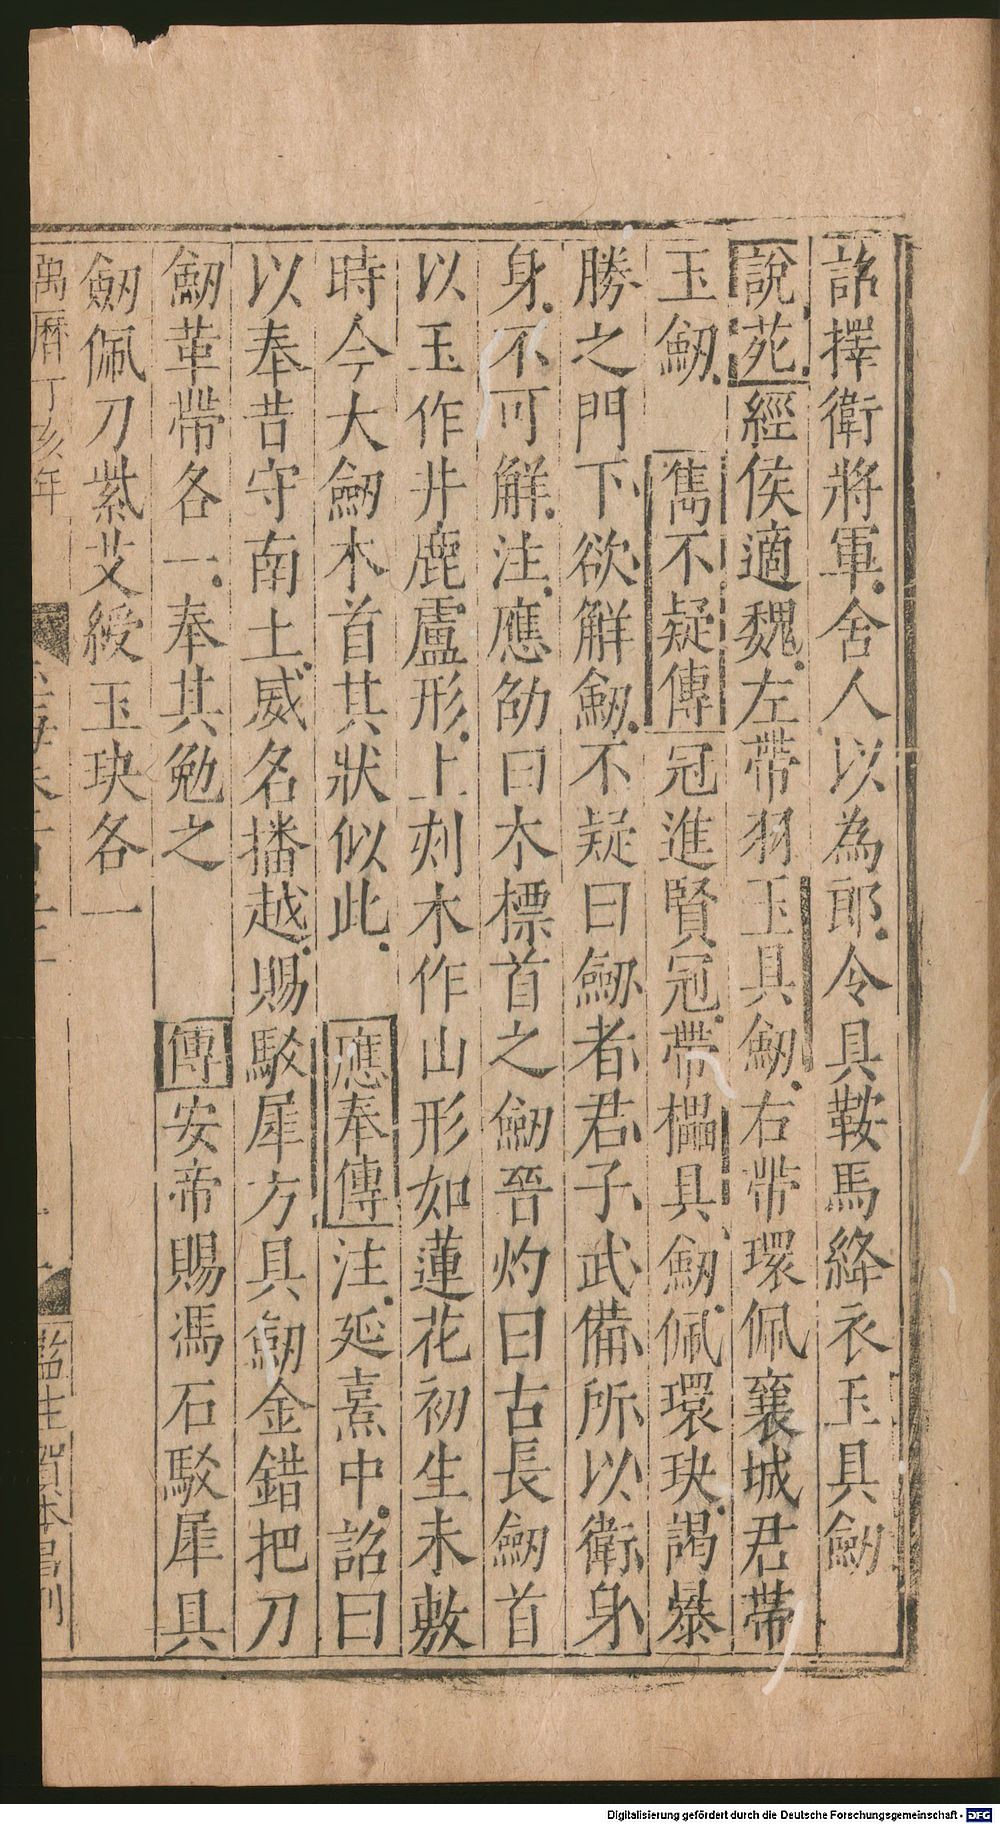 詔擇衛將軍舍人以為郎令具鞍馬絳衣玉具劒
說苑經侯適魏左帶羽玉具劒右帶環佩襄城君帶
玉劒 雋不疑傳冠進賢冠帶櫑具劒佩環玦謁暴
勝之門下欲解劒不疑曰劒者君子武備所以衛身
身不可解注應劭曰木標首之劒晉灼曰古長劒首
以玉作井鹿盧形上刻木作山形如蓮花初生未敷
時今大劒木首其狀似此 應奉傳注延熹中詔曰
以奉昔守南土威名播越賜駁犀方具劒金錯把刀
劒革帶各一奉其勉之 傳安帝賜馮石駁犀具
劒佩刀紫艾綬玉玦各一
萬曆丁亥年
監生賀本昌刊
Digitalisierung gefördert durch die Deutsche Forschungsgemeinschaft - DFG